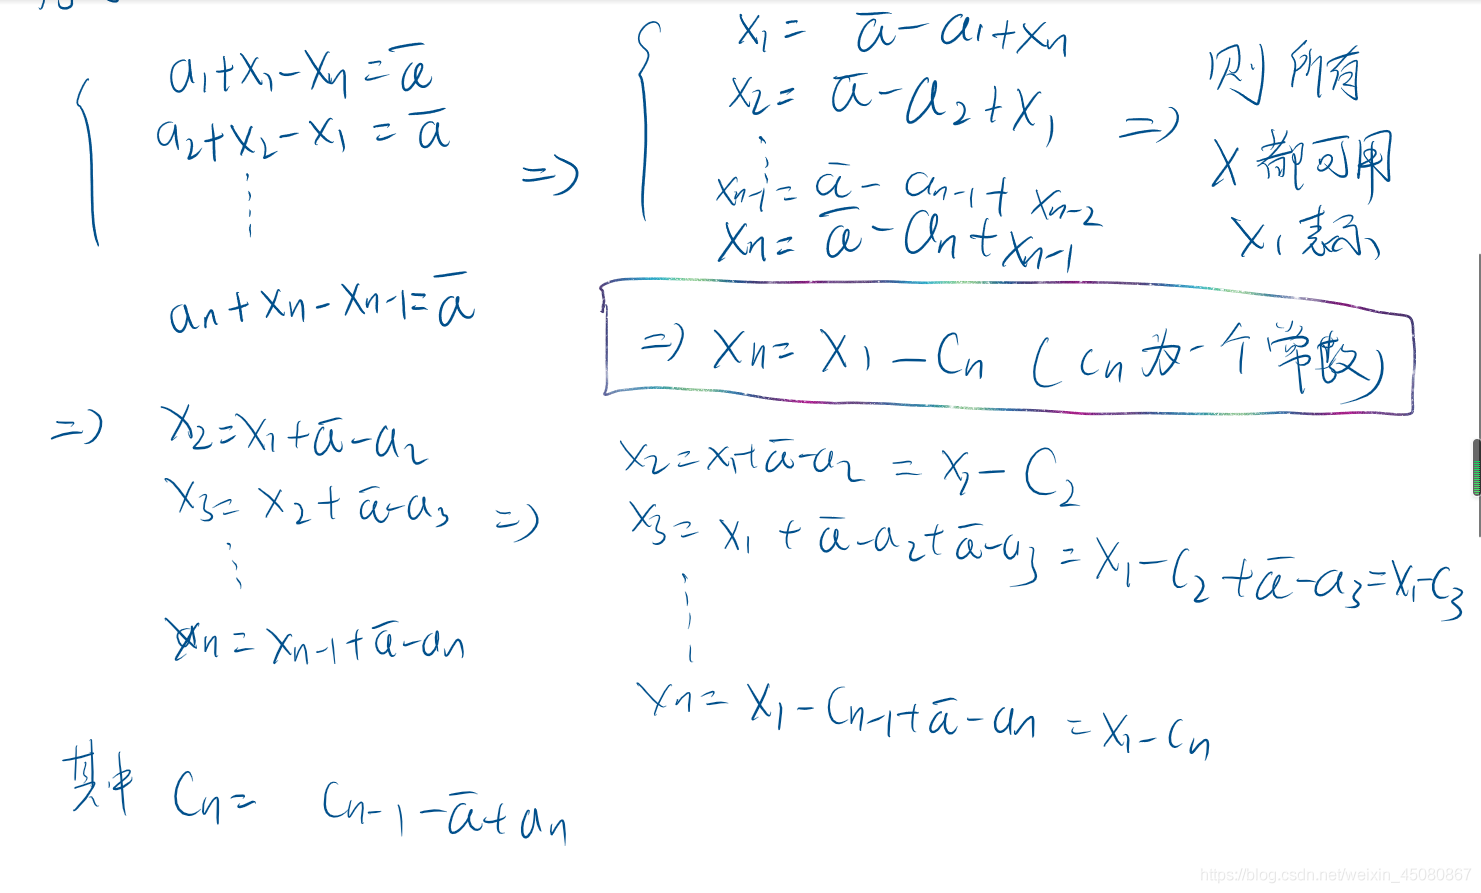 a₁+x₁-xₙ=a̅
a₂+x₂-x₁=a̅
⋮
aₙ+xₙ-xₙ₋₁=a̅
=>
x₁= a̅-a₁+xₙ
x₂= a̅-a₂+x₁
⋮
xₙ₋₁= a̅-aₙ₋₁+xₙ₋₂
xₙ= a̅-aₙ+xₙ₋₁
=>
则所有
x都可用
x₁表示
=> xₙ= x₁-Cₙ (Cₙ为一个常数)
=> x₂=x₁+a̅-a₂
x₃=x₂+a̅-a₃
⋮
xₙ=xₙ₋₁+a̅-aₙ
=>
x₂=x₁+a̅-a₂=x₁-C₂
x₃=x₁+a̅-a₂+a̅-a₃=x₁-C₂+a̅-a₃=x₁-C₃
⋮
xₙ=x₁-Cₙ₋₁+a̅-aₙ=x₁-Cₙ
其中 Cₙ= Cₙ₋₁-a̅+aₙ
https://blog.csdn.net/weixin_45080867